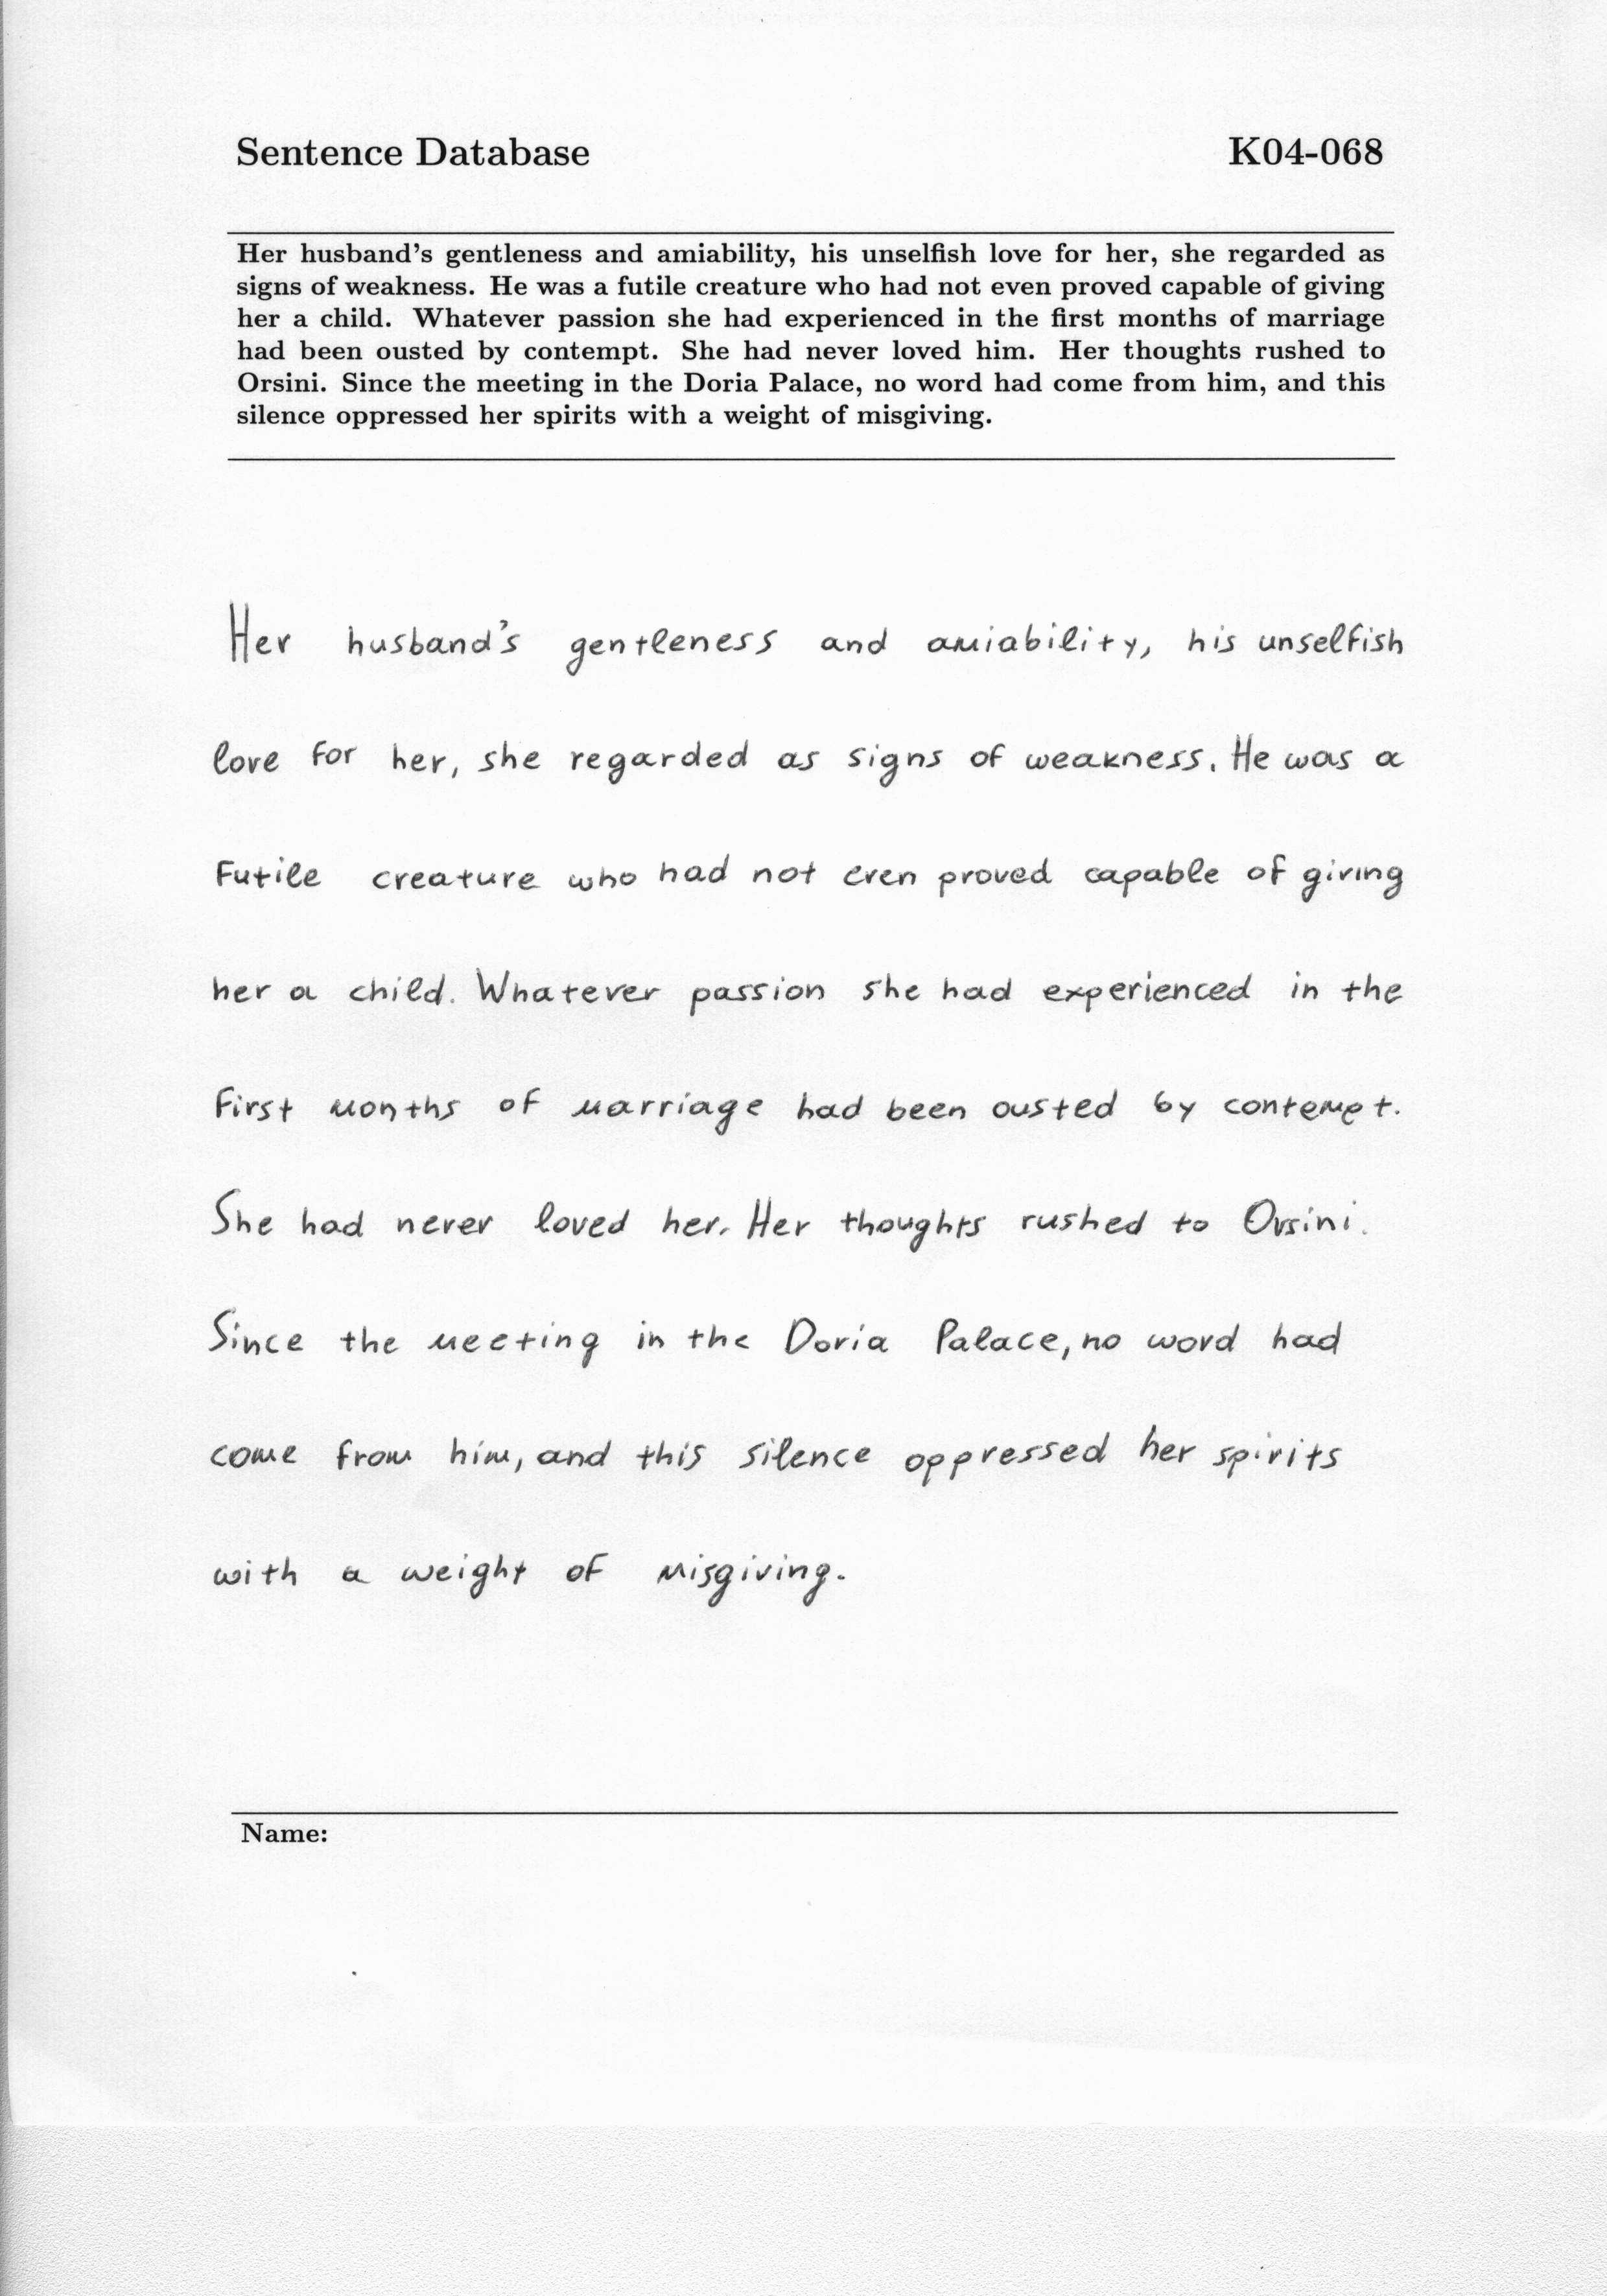 Sentence Database K04-068
Her husband's gentleness and amiability, his unselfish love for her, she regarded as
signs of weakness. He was a futile creature who had not even proved capable of giving
her a child. Whatever passion she had experienced in the first months of marriage
had been ousted by contempt. She had never loved him. Her thoughts rushed to
Orsini. Since the meeting in the Doria Palace, no word had come from him, and this
silence oppressed her spirits with a weight of misgiving.
Her husband's gentleness and amiability, his unselfish
love for her, she regarded as signs of weakness. He was a
futile creature who had not even proved capable of giving
her a child. Whatever passion she had experienced in the
first months of marriage had been ousted by contempt.
She had never loved her. Her thoughts rushed to Orsini.
Since the meeting in the Doria Palace, no word had
come from him, and this silence oppressed her spirits
with a weight of misgiving.
Name: